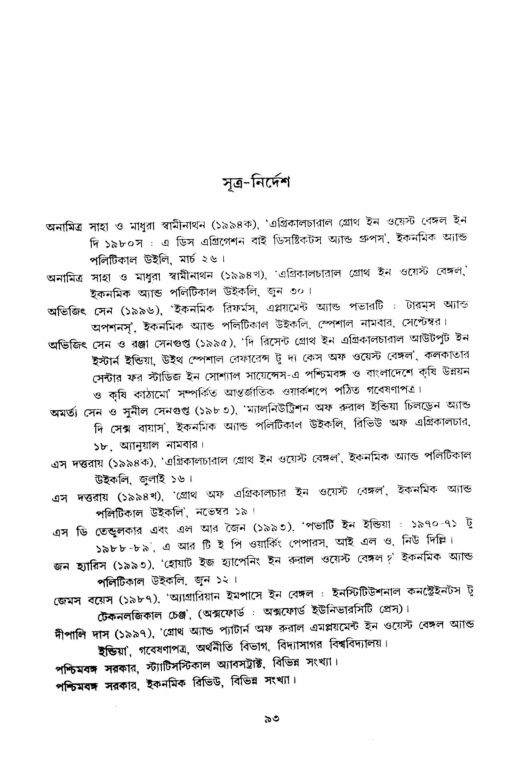 সূত্র-নির্দেশ
অনামিত্র সাহা ও মাধুরা স্বামীনাথন (১৯৯৪ক), ‘এগ্রিকালচারাল গ্রোথ ইন ওয়েস্ট বেঙ্গল ইন
দি ১৯৮০স : এ ডিস এগ্রিগেশন বাই ডিসষ্টিকটস অ্যান্ড গ্রুপস’, ইকনমিক অ্যান্ড
পলিটিকাল উইলি, মার্চ ২৬।
অনামিত্র সাহা ও মাধুরা স্বামীনাথন (১৯৯৪খ), ‘এগ্রিকালচারাল গ্রোথ ইন ওয়েস্ট বেঙ্গল,’
ইকনমিক অ্যান্ড পলিটিকাল উইকলি, জুন ৩০।
অভিজিৎ সেন (১৯৯৬), ‘ইকনমিক রিফর্মস, এপ্লয়মেন্ট অ্যান্ড পভারটি : টারম্‌স অ্যান্ড
অপশনস্‌’, ইকনমিক অ্যান্ড পলিটিকাল উইকলি, স্পেশাল নামবার, সেপ্টেম্বর।
অভিজিৎ সেন ও রঞ্জা সেনগুপ্ত (১৯৯৫), ‘দি রিসেন্ট গ্রোথ ইন এগ্রিকালচারাল আউটপুট ইন
ইস্টার্ন ইন্ডিয়া, উইথ স্পেশাল রেফারেন্স টু দা কেস অফ ওয়েস্ট বেঙ্গল’, কলকাতার
সেন্টার ফর স্টাডিজ ইন সোশ্যাল সায়েন্সেস-এ পশ্চিমবঙ্গ ও বাংলাদেশে কৃষি উন্নয়ন
ও কৃষি কাঠামো’ সম্পর্কিত আন্তর্জাতিক ওয়ার্কশপে পঠিত গবেষণাপত্র।
অমর্ত্য সেন ও সুনীল সেনগুপ্ত (১৯৮৩), ‘ম্যালনিউট্রিশন অফ রুরাল ইন্ডিয়া চিলড্রেন অ্যান্ড
দি সেক্স বায়াস’, ইকনমিক অ্যান্ড পলিটিকাল উইকলি, রিভিউ অফ এগ্রিকালচার,
১৮, অ্যানুয়াল নামবার।
এস দত্তরায় (১৯৯৪ক), ‘এগ্রিকালচারাল গ্রোথ ইন ওয়েস্ট বেঙ্গল’, ইকনমিক অ্যান্ড পলিটিকাল
উইকলি, জুলাই ১৬।
এস দত্তরায় (১৯৯৪খ), ‘গ্রোথ অফ এগ্রিকালচার ইন ওয়েস্ট বেঙ্গল’, ইকনমিক অ্যান্ড
পলিটিকাল উইকলি’, নভেম্বর ১৯।
এস ডি তেন্ডুলকার এবং এল আর জৈন (১৯৯৩), ‘পভার্টি ইন ইন্ডিয়া : ১৯৭০-৭১ টু
১৯৮৮-৮৯’, এ আর টি ই পি ওয়ার্কিং পেপারস, আই এল ও, নিউ দিল্লি।
জন হ্যারিস (১৯৯৩), ‘হোয়াট ইজ হ্যাপেনিং ইন রুরাল ওয়েস্ট বেঙ্গল?’ ইকনমিক অ্যান্ড
পলিটিকাল উইকলি, জুন ১২।
জেমস বয়েস (১৯৮৭), ‘অ্যাগ্রারিয়ান ইমপাসে ইন বেঙ্গল : ইনস্টিটিউশনাল কনস্ট্রেইনটস টু
টেকনলজিকাল চেঞ্জ’, (অক্সফোর্ড : অক্সফোর্ড ইউনিভারসিটি প্রেস)।
দীপালি দাস (১৯৯৭), ‘গ্রোথ অ্যান্ড প্যাটার্ন অফ রুরাল এমপ্লয়মেন্ট ইন ওয়েস্ট বেঙ্গল অ্যান্ড
ইন্ডিয়া’, গবেষণাপত্র, অর্থনীতি বিভাগ, বিদ্যাসাগর বিশ্ববিদ্যালয়।
পশ্চিমবঙ্গ সরকার, স্ট্যাটিসস্টিকাল অ্যাবসট্রাক্ট, বিভিন্ন সংখ্যা।
পশ্চিমবঙ্গ সরকার, ইকনমিক রিভিউ, বিভিন্ন সংখ্যা।
৯৩